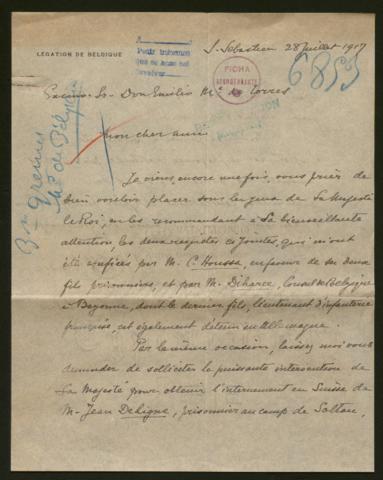 LÉGATION DE BELGIQUE
S. Sébastien 28 juillet 1917
Pedir informes
FICHA
6855
Excmo. Sr. Don Emilio Mª de Torres
Bon Grenier
Mtro de Bélgica
Mon cher ami,
Je viens, encore une fois, vous prier de
bien vouloir placer sous les yeux de Sa Majesté
le Roi, en les recommandant à Sa bienveillante
attention, les deux requêtes ci-jointes, qui m'ont
été confiées par M. C. Houssa, en faveur de ses deux
fils prisonniers, et par M. Déharce, Consul de Belgique
à Bayonne, dont le dernier fils, lieutenant d'infanterie
française, est également détenu en Allemagne.
Par la même occasion, laissez moi vous
demander de solliciter la puissante intervention de
Sa Majesté pour obtenir l'internement en Suisse de
M. Jean Dehigne, prisonnier au camp de Soltau,